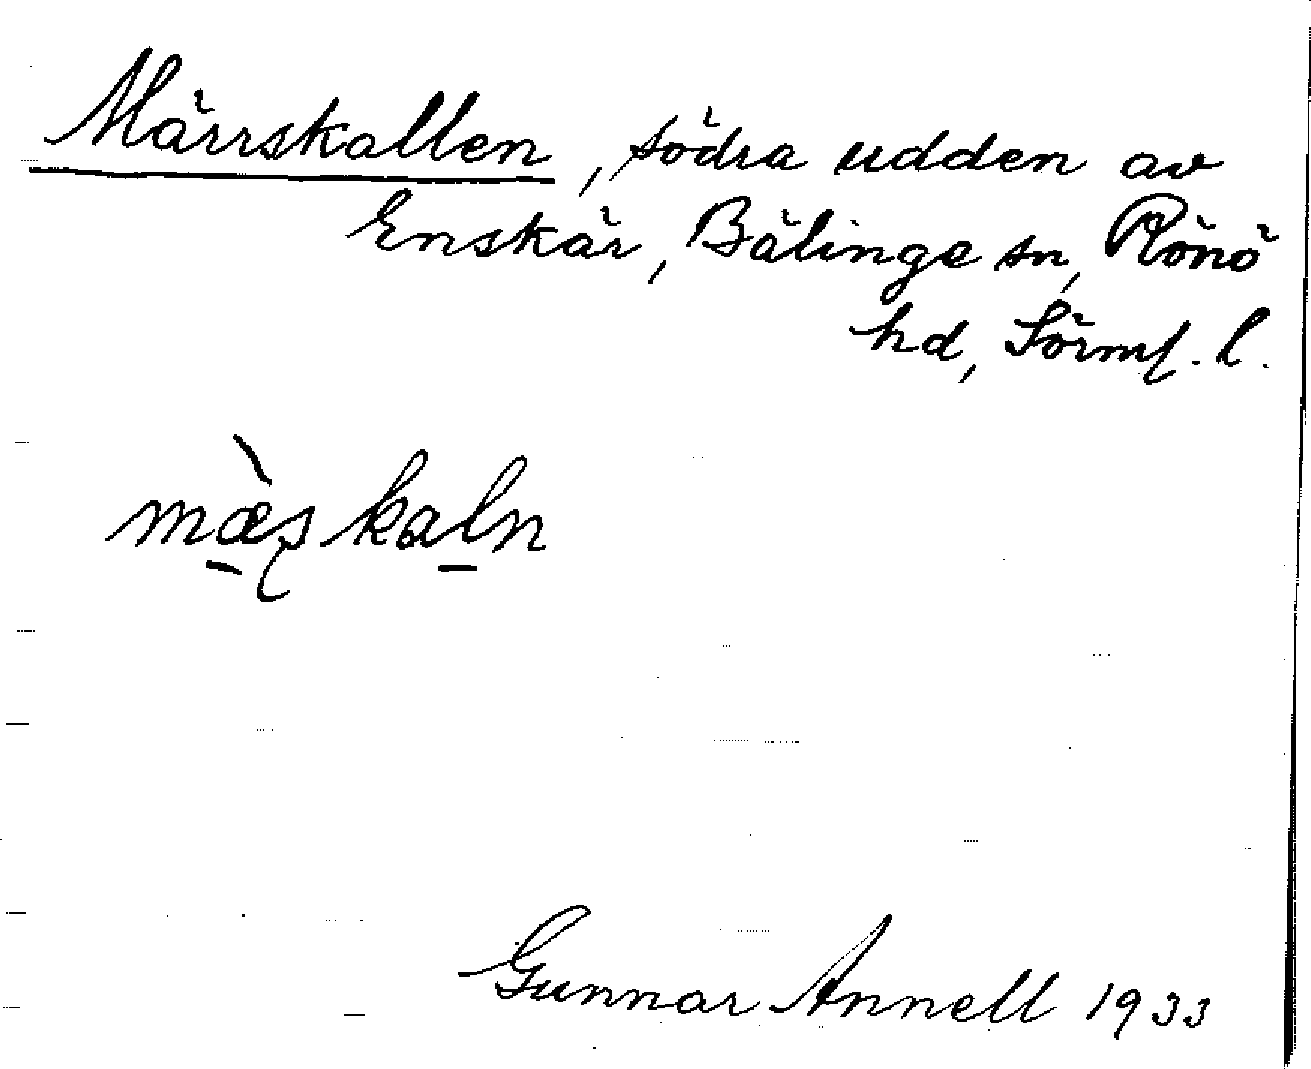 Märrskallen, södra udden av
Enskär, Bälinge sn, Rönö
hd, Sörml. l.
mæ̀ʂkaln
Gunnar Annell 1933